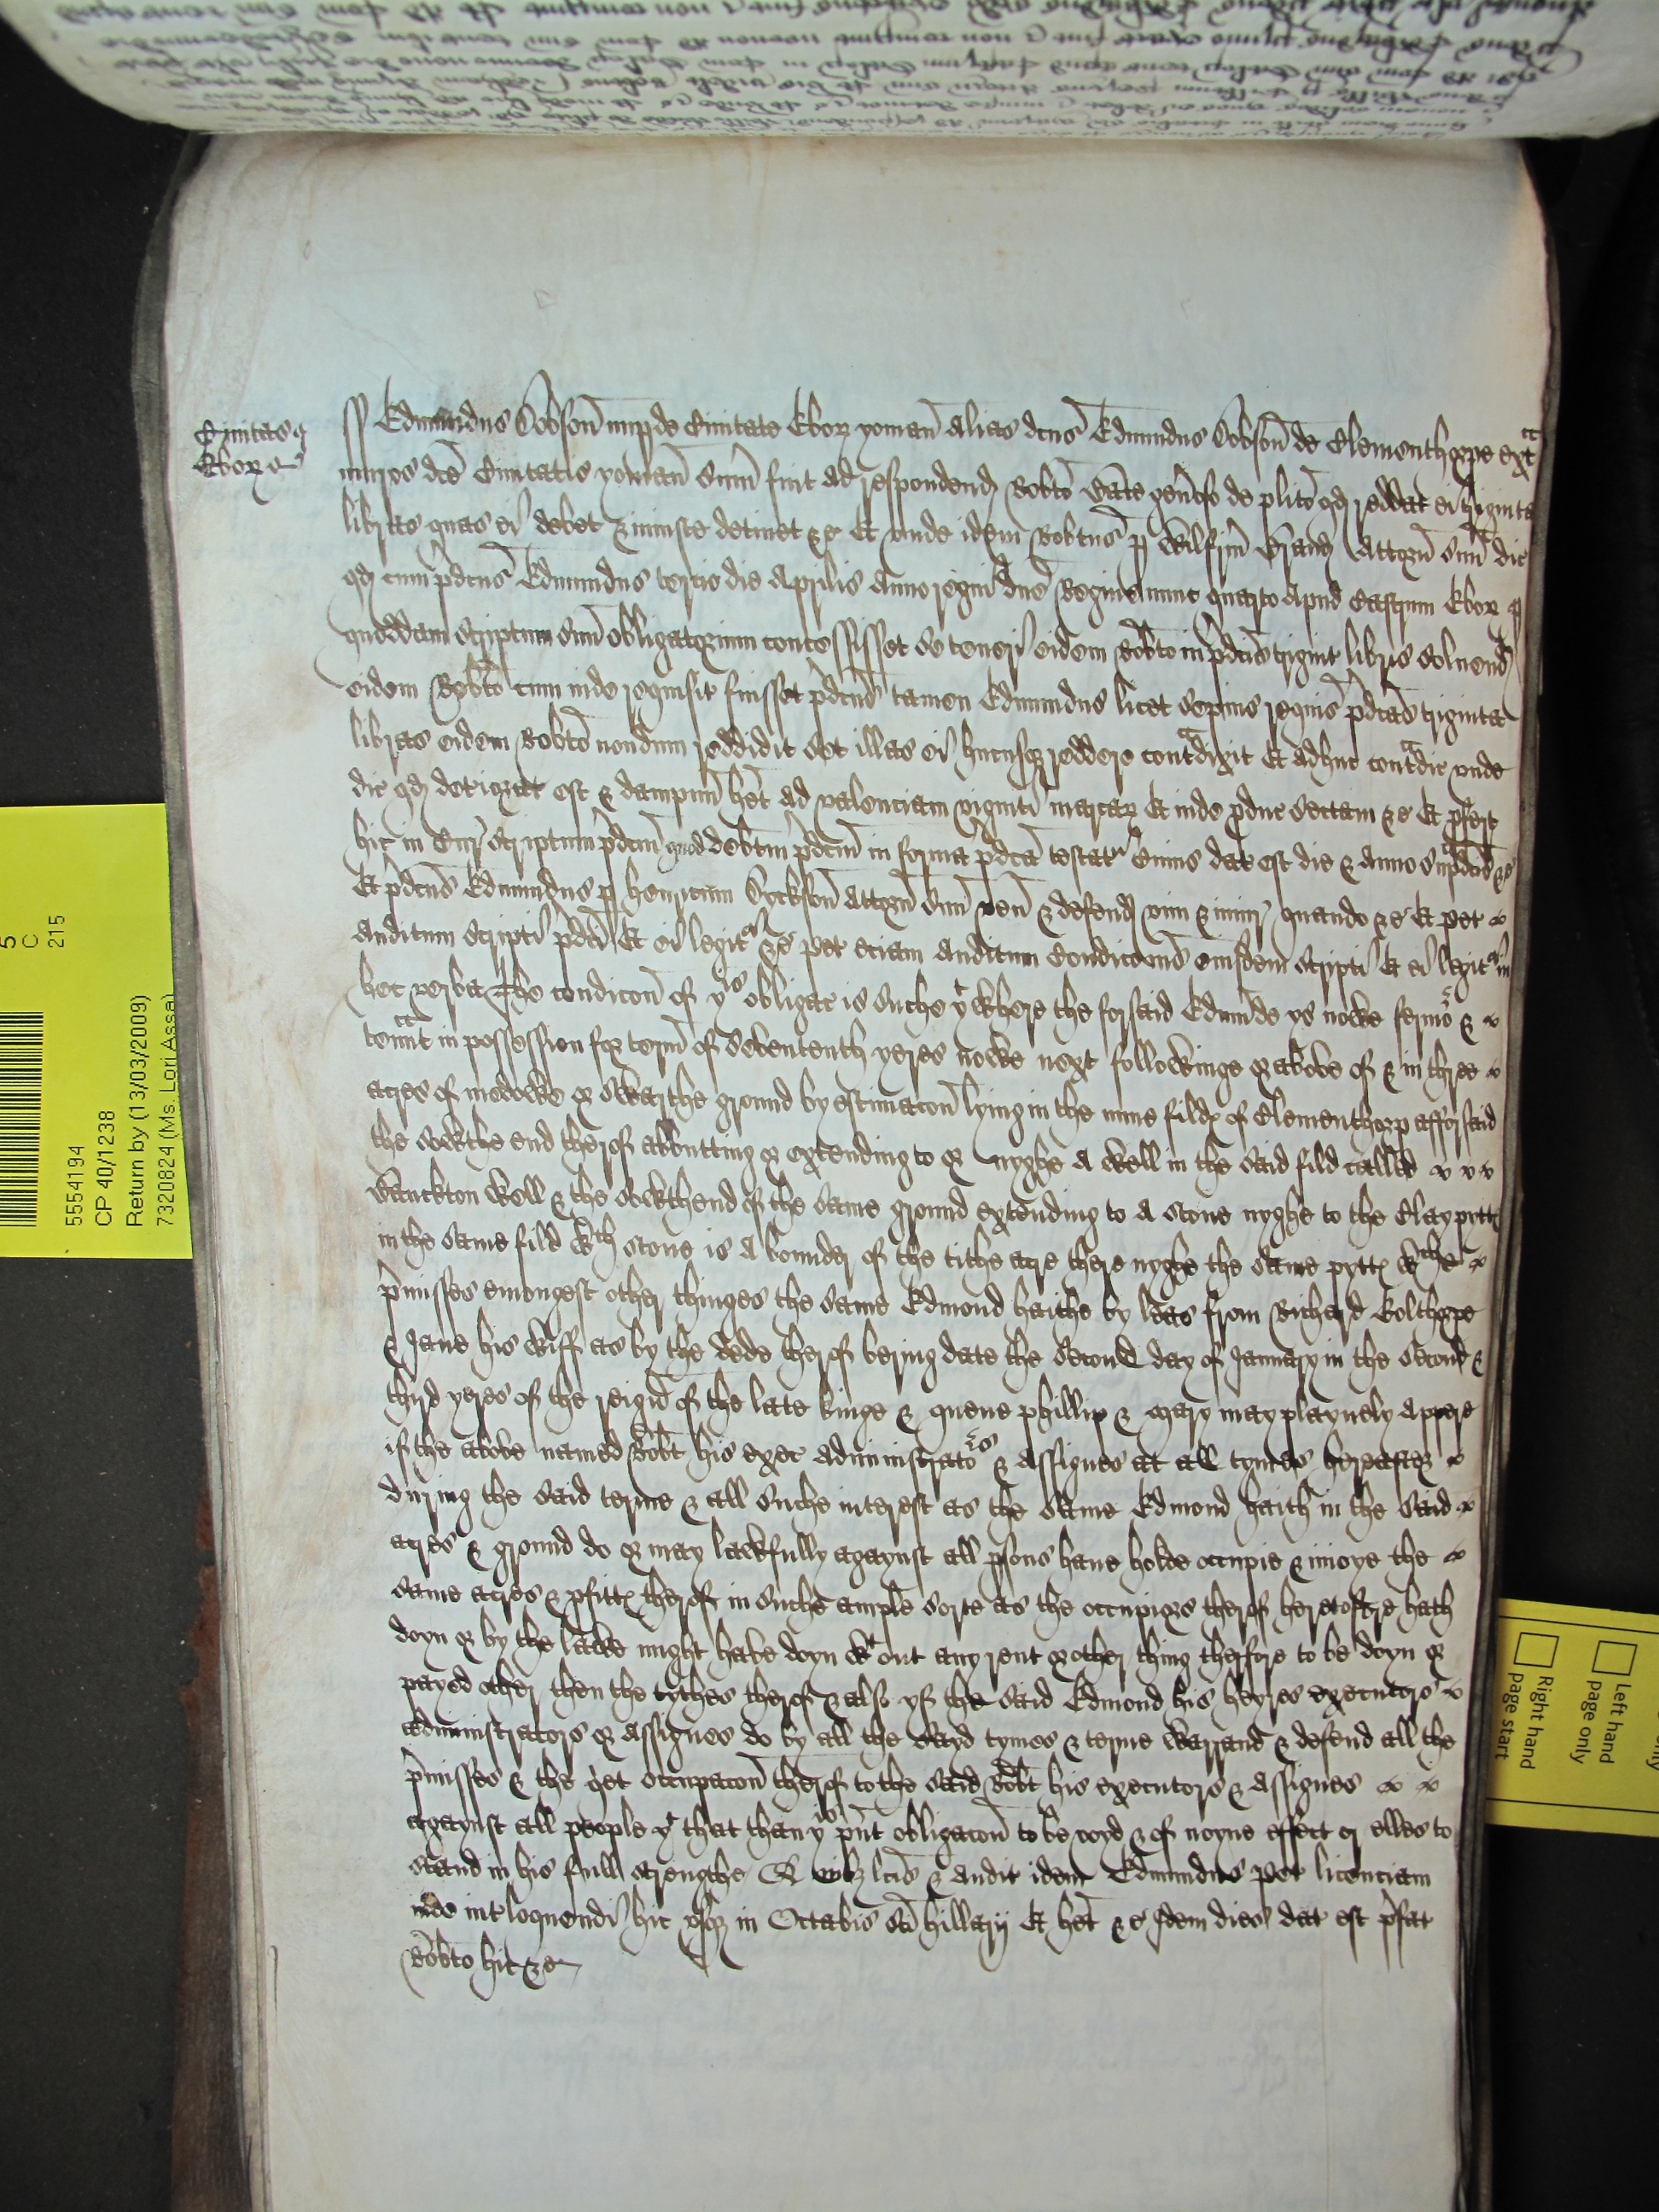 Civitas
Ebor
Edmundus Dobson nup de Civitate Ebor yoman alias dcus Edmundus Dobson de Clementhorpe ext
muros dce Civitatis yoman sum fuit ad respondend Robto gen'oso de plito qd reddat ei triginta
libras quas ei debet & iniuste detinet &c Et unde idem Robtus p Wilfrm Brand Attorn suu dic
qd cum pdcus Edmundus tercio die Aprilis Anno regni dne Regine nunc quarto apud Castrum Ebor p
quoddam scriptum suu obligatorium concessisset se teneri eidem Robto in pdcis trigint libris solvend
eidem Robto cum inde requisit fuisset pdcus tamen Edmundus licet sepius requis pdcas triginta
libras eidem Robto nondum reddidit set illas ei hucusq reddere contradixit Et adhuc contradic unde
dic qd deteriorat est & dampnu het ad valenciam viginti marcar Et inde pduc sectam &c Et pfert
hic in Cur scriptum pdcm quod debitm pdcm in forma pdca testat Cuius dat est die & Anno supdcis &c
Et pdcus Edmundus p Henricum Dyckson Attorn suu ven & defend vim & iniur quando &c Et pet
Auditum scripti pdci Et ei legit &c pet eciam auditum Condicois eiusdem scripti Et ei legit in
hec verba The condicon of ys obligac is suche yt where the forsaid Edmude ys nowe fermor &
tennt in possession for term of sevententh yeres nowe next followinge or above of & in three
acres of medowe or swarthe ground by estimacon lying in the nune fild of Clementhorp afforsaid
the sowthe end therof abbutting or extending to or nyghe a Well in the said fild called
Well & the Northend of the same ground extending to a stone nyghe to the Clay pytt
in the same fild Wch stone is a bounder of the tithe acre there nyghe the same pytt Wche
pmisses emongest other thinges the same Edmond haithe by leas from Richard Golthorpe
& Jane his Wiff as by the dede therof bering date the second day of January in the second &
third yeres of the reign of the late kinge & quene phillip & Mary may playnely appere
if the above named Robt his exec administrators & assignes at all tymes hereafter
during the said terme & all suche interest as the same Edmond haith in the said
acres & ground do or may lawfully agaynst all psons have holde occupie & inioye the
same acres & pfitt therof in suche ample sorte as the occupiers therof heretofore hath
doyn or by the lawe might have doyn Wt out any rent or other thing therfore to be doyn or
payed other then the tythes therof & also yf the said Edmond his heyres executors
administrators or assignes do by all the sayd tymes & terme Warrand & defend all the
pmisses & the qet occupacon therof to the said Robt his executors & assignes
agaynst all people yt that than ys pnt obligacon to be voyd & of noyne effect or elles to
stand in his full strengthe Quibz lcis & audit idem Edmundus pet licenciam
inde int loquendi hic usq in Octabis Sci Hillarij Et het &c Idem dies dat est pfat
Robto hic &c
5
C
215
5554194
CP 40/1238
Return by (13/03/2009)
7320824 (Ms. Lori Assa)
Left hand
page only
Right hand
page start